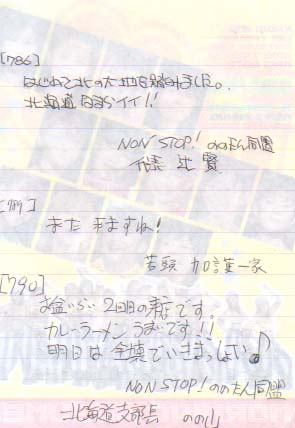 [786]
はじめて北の大地を踏みました。
北海道はでっかイイ!!
NON STOP! ののたん同盟
辻 賢
[789]
また来ますね!
若頭 加護一家
[790]
お盆らい2回目の来店です。
カレーラーメンうまいです!!
明日は全席でいきまっしょい♪
NON STOP! ののたん同盟
北海道支部長 のの山